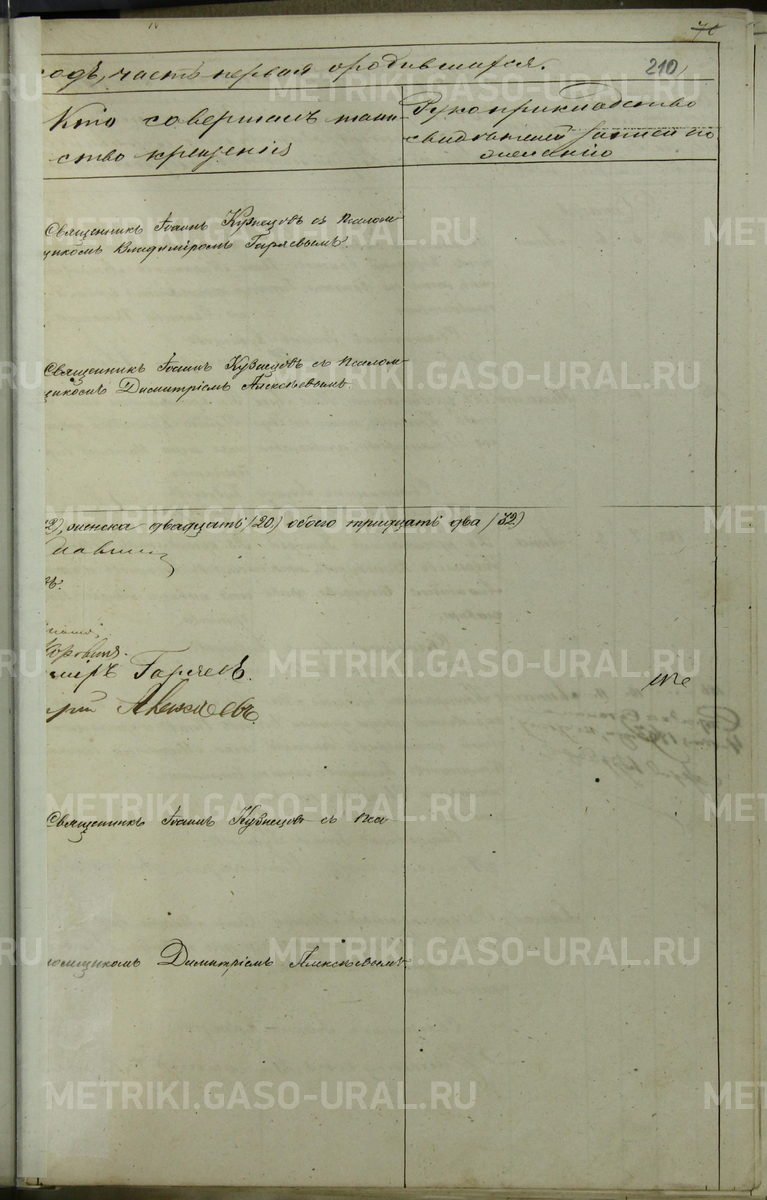 210
годъ, часть первая о родившихся.
Кто совершалъ таин-
ство крещенія
Рукоприкладство
свидѣтелей записи по
желанію
Священникъ Іоаннъ Кузнецовъ съ псалом-
щикомъ Владиміромъ Гаряевымъ.
Священникъ Іоаннъ Кузнецовъ съ псалом-
щикомъ Димитріемъ Алексѣевымъ.
12), женска двадцать (20) обоего тридцать два (32)
міръ Гаряевъ.
трій Алексѣевъ.
Священникъ Іоаннъ Кузнецовъ съ пса
ломщикомъ Димитріемъ Алексѣевымъ.
METRIKI.GASO-URAL.RU